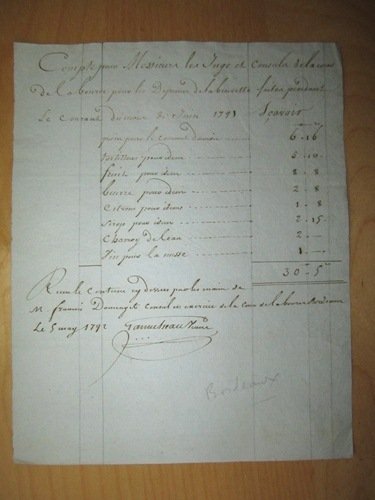 Compte pour Messieurs les Juge et Consuls de la cour
de La bourse pour les Depances de la buvette faites pendant
Le Courant du mois d 1791 Scavoir
pain pour le courant 6 - 16
tortillons pour idem 5 - 10
fruits pour idem 8 - 8
beurre pour idem 2 - 8
Citrons pour idem 1 - 8
Sirop pour idem 2 - 15
Charoy de leau 2 -
Vin pour la messe 1 -
30 - 5
Recu le Contenu cy dessus par les main de
Mr francois Domenget Consul en exercice de la Cour de la bourse Bordeaux
Le 5 may 1792
Bordeaux